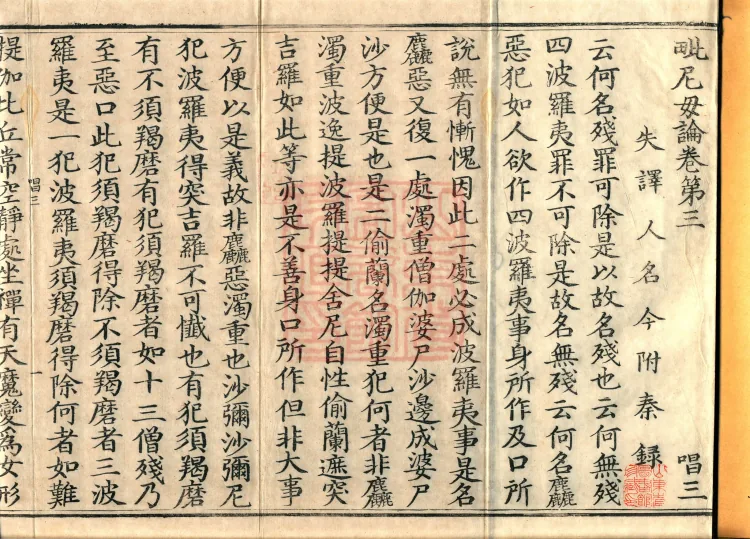 毗尼母論卷第三　唱三
失譯人名今附秦錄
云何名殘罪可除是以故名殘也云何無殘
四波羅夷罪不可除是故名無殘云何名麤
惡犯如人欲作四波羅夷事身所作及口所
說無有慚愧因此二處必成波羅夷事是名
麤惡又復一處濁重僧伽婆尸沙邊成婆尸
沙方便是也是二偷蘭名濁重犯何者非麤
濁重波逸提波羅提提舍尼自性偷蘭遮突
吉羅如此等亦是不善身口所作但非大事
方便以是義故非麤惡濁重也沙彌沙彌尼
犯波羅夷得突吉羅不可懺也有犯須羯磨
有不須羯磨有犯須羯磨者如十三僧殘乃
至惡口此犯須羯磨得除不須羯磨者三波
羅夷是一犯波羅夷須羯磨得除何者如難
唱三
一
提伽比丘常空靜處坐禪有天魔變為女形